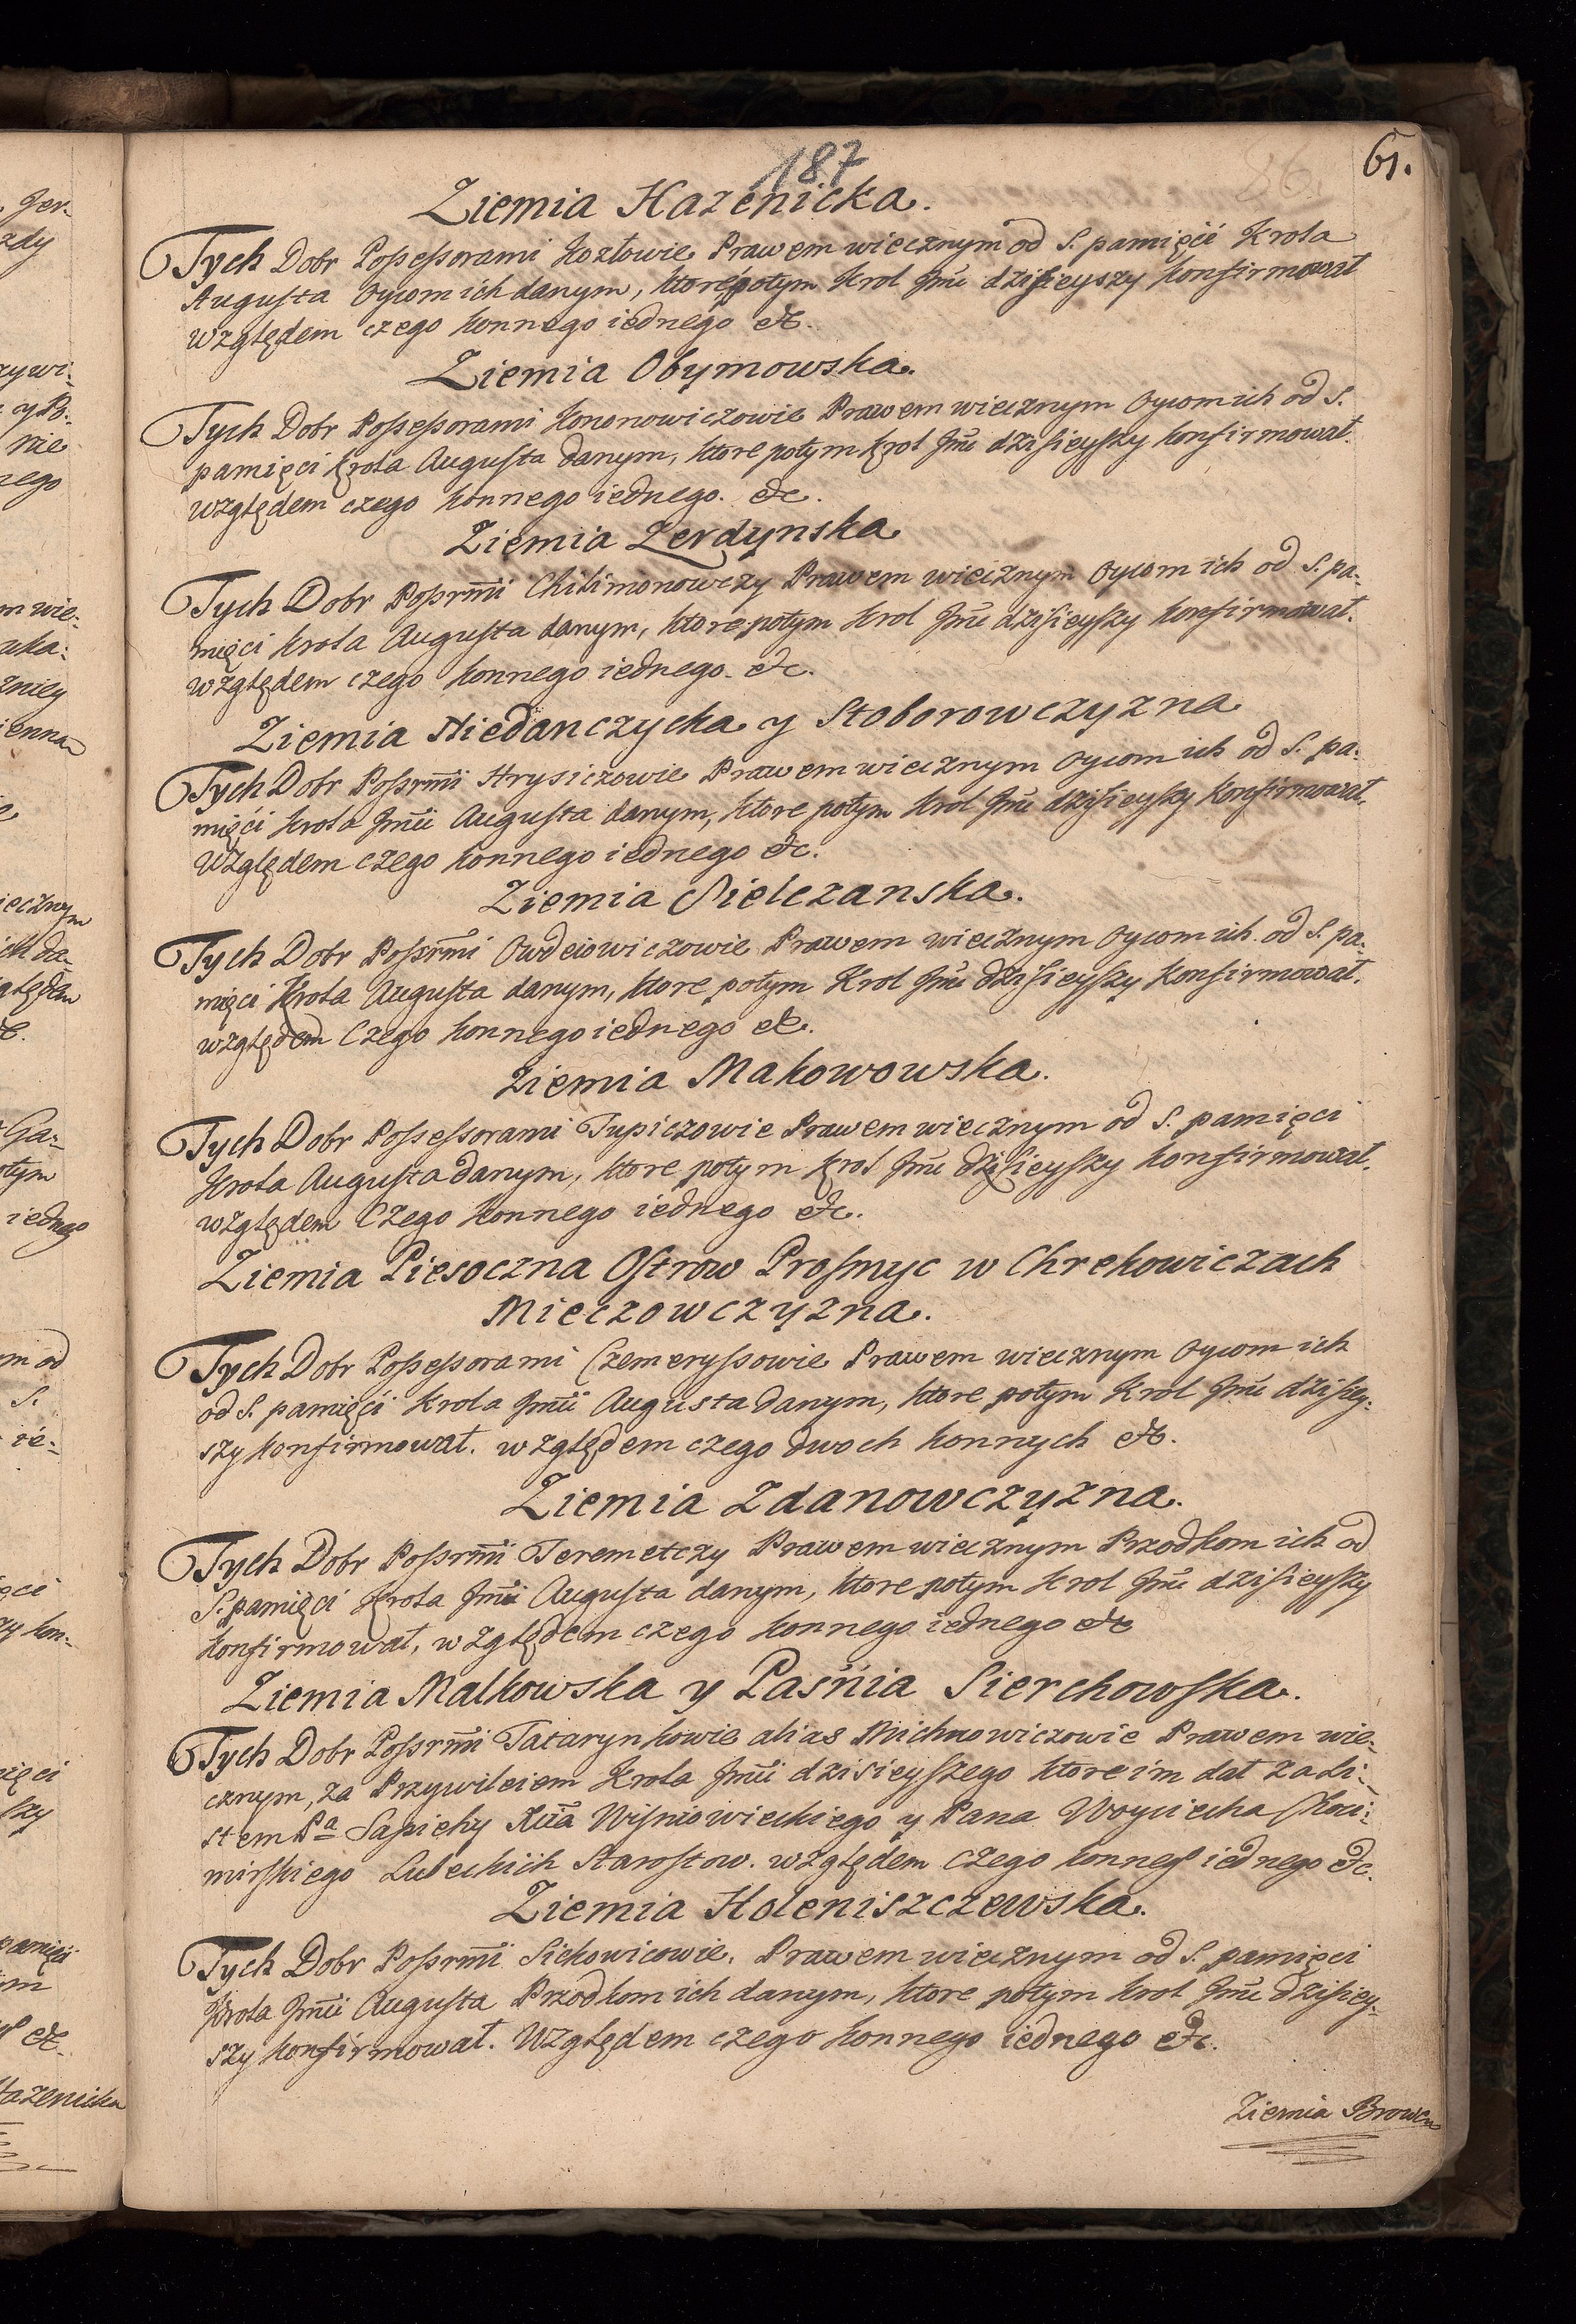 187
61.
Ziemia Hazenicka.
Tych Dobr Possessorami Kozłowie Prawem wiecznym od S. pamięci Krola
Augusta Oycom ich danym, ktore potym Krol Jmć dzisieyszy konfirmował
względem czego konnego iednego etc.
Ziemia Obymowska.
Tych Dobr Possessorami Kononowiczowie Prawem wiecznym Oycom ich od S.
pamięci Krola Augusta danym, ktore potym Krol Jmć dzisieyszy konfirmował.
względem czego konnego iednego. etc.
Ziemia Zerdynska
Tych Dobr Possrmi Chilimonowczy Prawem wiecznym Oycom ich od S. pa-
mięci Krola Augusta danym, ktore potym Krol Jmć dzisieyszy konfirmował.
względem czego konnego iednego. etc.
Ziemia Niedanczycka y Stoborowczyzna
Tych Dobr Possrmi Hrysiczowie Prawem wiecznym Oycom ich od S. pa-
mięći Krola Jmći Augusta danym, ktore potym Krol Jmć dzisieyszy konfirmował.
Względem czego konnego iednego etc.
Ziemia Sielczanska.
Tych Dobr Possrmi Owdeiowiczowie Prawem wiecznym Oycom ich od S. pa-
mięci Krola Augusta danym, ktore potym Krol Jmć dzisieyszy konfirmował.
względem Czego konnego iednego etc.
Ziemia Makowowska.
Tych Dobr Possessorami Tupiczowie Prawem wiecznym od S. pamięci
Krola Augusta danym, ktore potym Krol Jmć dzisieyszy konfirmował.
względem Czego konnego iednego etc.
Ziemia Piesoczna Ostrow Prosmyc w Chrekowiczach
Mieczowczyzna.
Tych Dobr Possessorami Czemeryssowie Prawem wiecznym Oycom ich
od S. pamięći Krola Jmći Augusta danym, ktore potym Krol Jmć dzisiey-
szy konfirmował. względem czego dwoch konnych etc.
Ziemia Zdanowczyzna.
Tych Dobr Possrmi Teremetczy Prawem wiecznym Przodkom ich od
S. pamięci Krola Jmći Augusta danym, ktore potym Krol Jmć dzisieyszy
konfirmował, względem czego konnego iednego etc
Ziemia Malkowska y Paśnia Sierchowska.
Tych Dobr Possrmi Tatarynkowie alias Michnowiczowie Prawem wie-
cznym, za Przywileiem Krola Jmći dzisieyszego ktore im dał za Li-
stem Pa Sapiehy Xcia Wisniowieckiego y Pana Woyciecha Choci-
mirskiego Lubeckich Starostow. względem czego konneg iednego etc.
Ziemia Holeniszczewska.
Tych Dobr Possrmi Sichowicowie. Prawem wiecznym od S. pamięci
Krola Jmći Augusta Przodkom ich danym, ktore potym Krol Jmć dzisiey-
szy konfirmował. Względem czego konnego iednego etc.
Ziemia Browcn